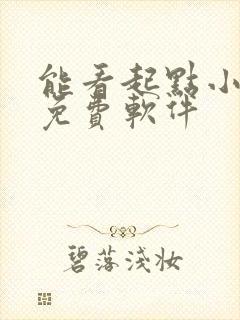 能看起點小
免費軟件
碧落淺妝